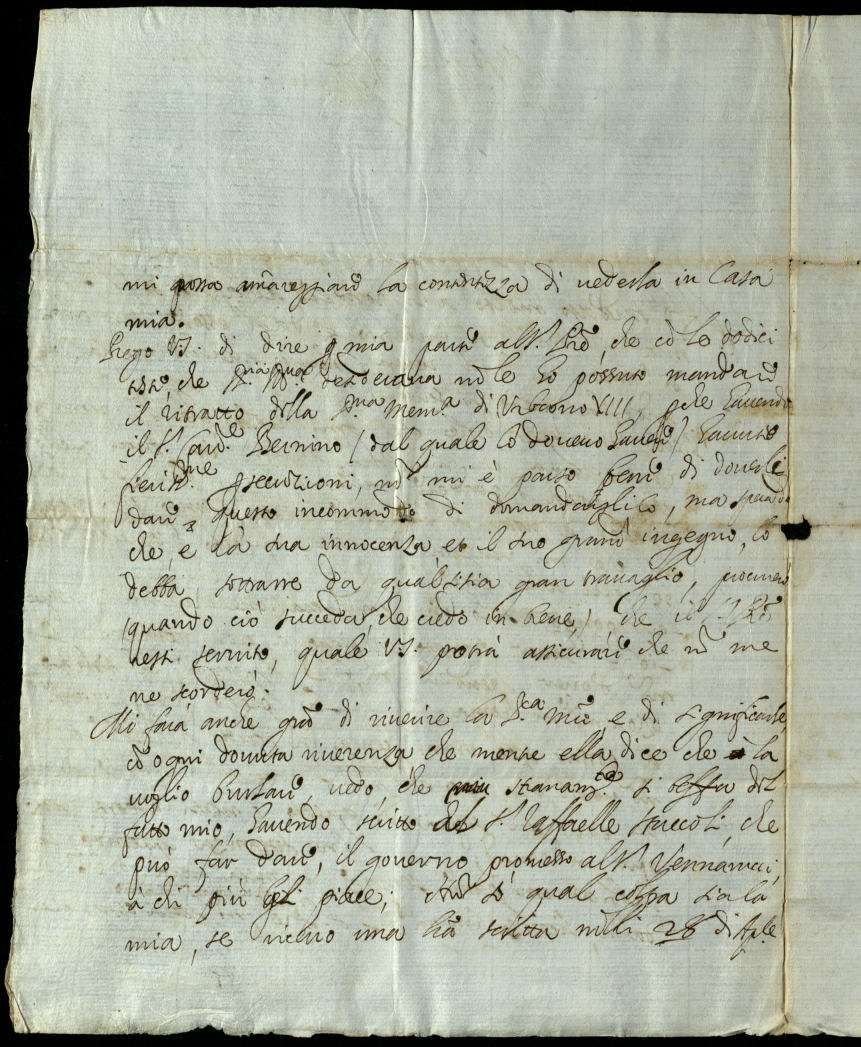 mi possa amareggiare la contentezza di vederla in Casa
mia.
Prego V.S. di dire p mia parte al S.r che cõ le dodici
teste, che desiderava nõ le hò possuto mandare
il ritratto della memª di Urbano VIII, havendo
il S.r Cav.re Bernino / dal quale lo dovevo havere / havute
persecuzioni, nõ mi è parso bene di doverli
dare questo incommodo di domandarglilo, ma sperando
che, e la sua innocenza et il suo grande ingegno, lo
debba sottrarre da qualsisia gran travaglio, procurerò
(quando ciò succeda, che credo in bene) che il S.r
resti servito, quale V.S. potrà assicurare che nõ me
ne scorderò.
Mi farà anche grã di riverire la S.ra e di significarle,
cõ ogni dovuta riverenza che mentre ella dice che la
voglio burlare, vedo, che stranam.te si beffa del
fatto mio, havendo scritto al S.r Raffaelle Staccoli, che
può far dare, il governo promesso al S.r Vennarucci,
à chi più gli piace; sò qual colpa sia la
mia, se ricevo una scritta nelli 28 di Aple